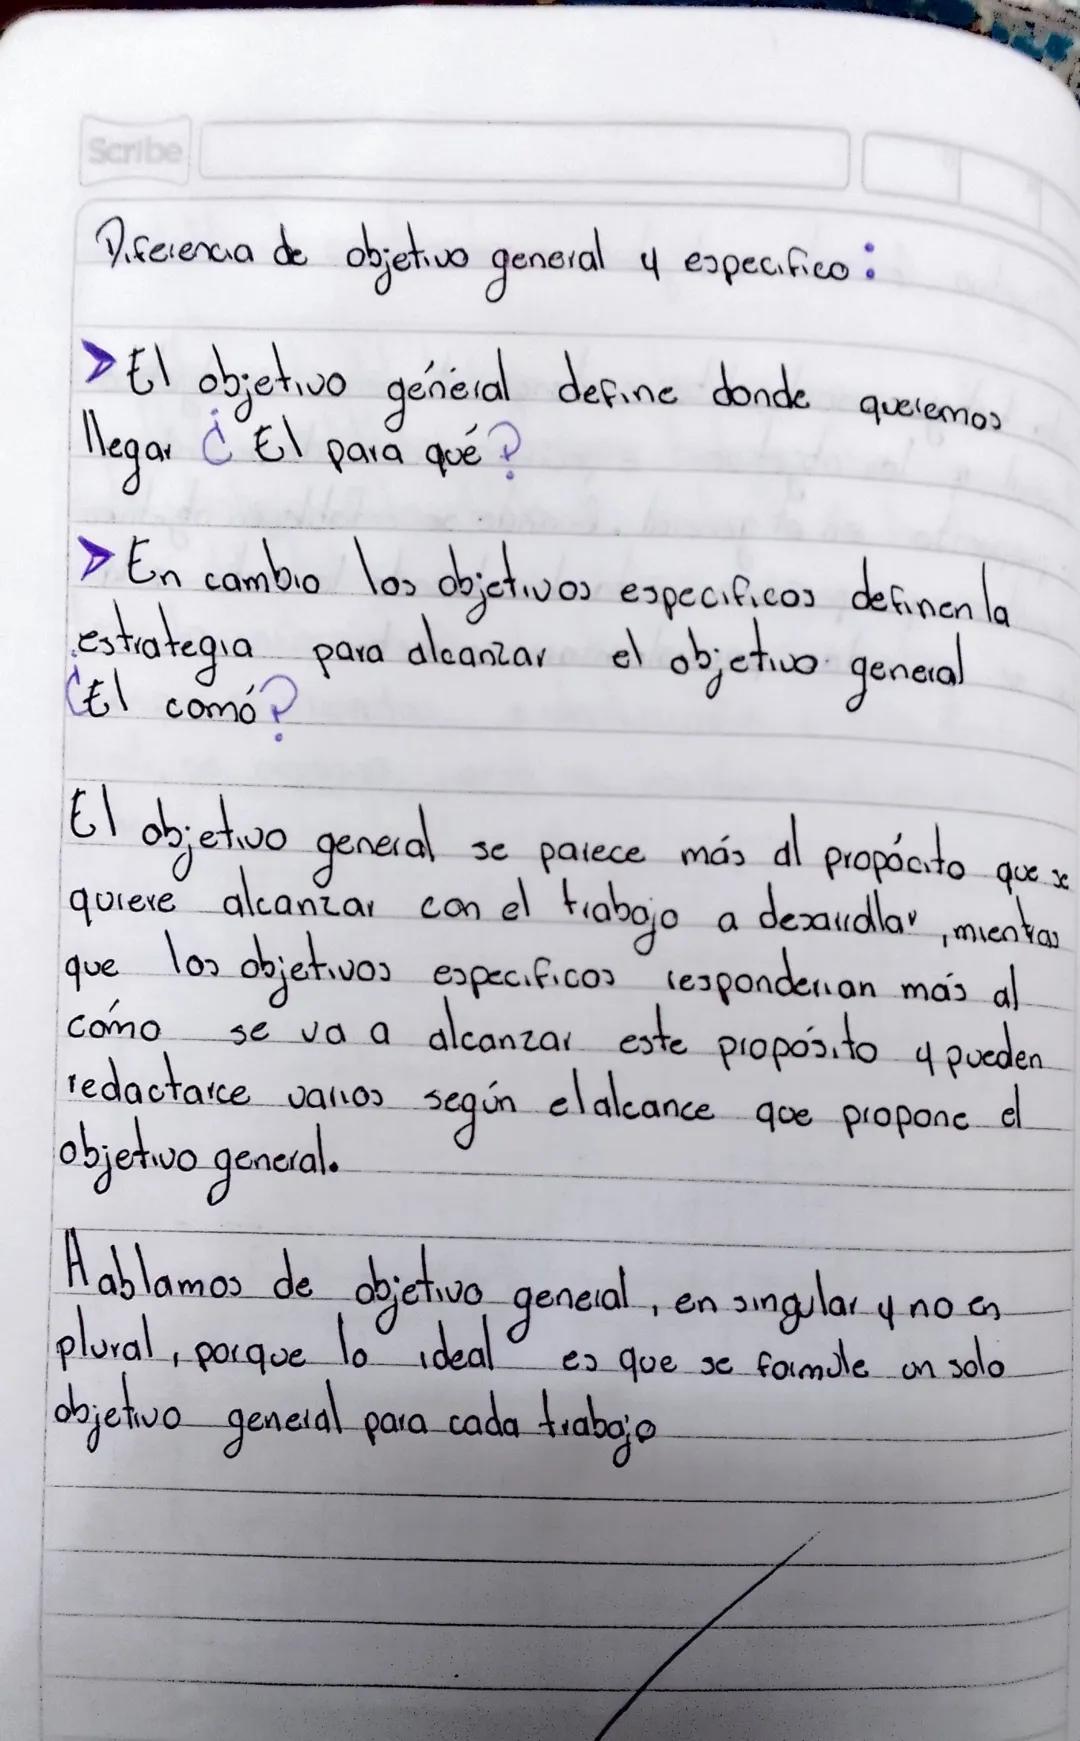 Scribe
Diferencia de objetivo general y especifico:
> El objetivo général define donde queremos
llegar ¿El para qué?
> En cambio los objetivos especificos definen la
estrategia para alcanzar el objetivo general
¿El comó?
El objetivo general se parece más al propócito que se
quiere alcanzar con el trabajo a desarrollar, mientras
que los objetivos especificos responderian más al
cómo se va a alcanzar este propósito y pueden
redactarce varios según el alcance que propone el
objetivo general.
Hablamos de objetivo general, en singular y no en
plural, porque lo ideal es que se formule un solo
objetivo general para cada trabajo